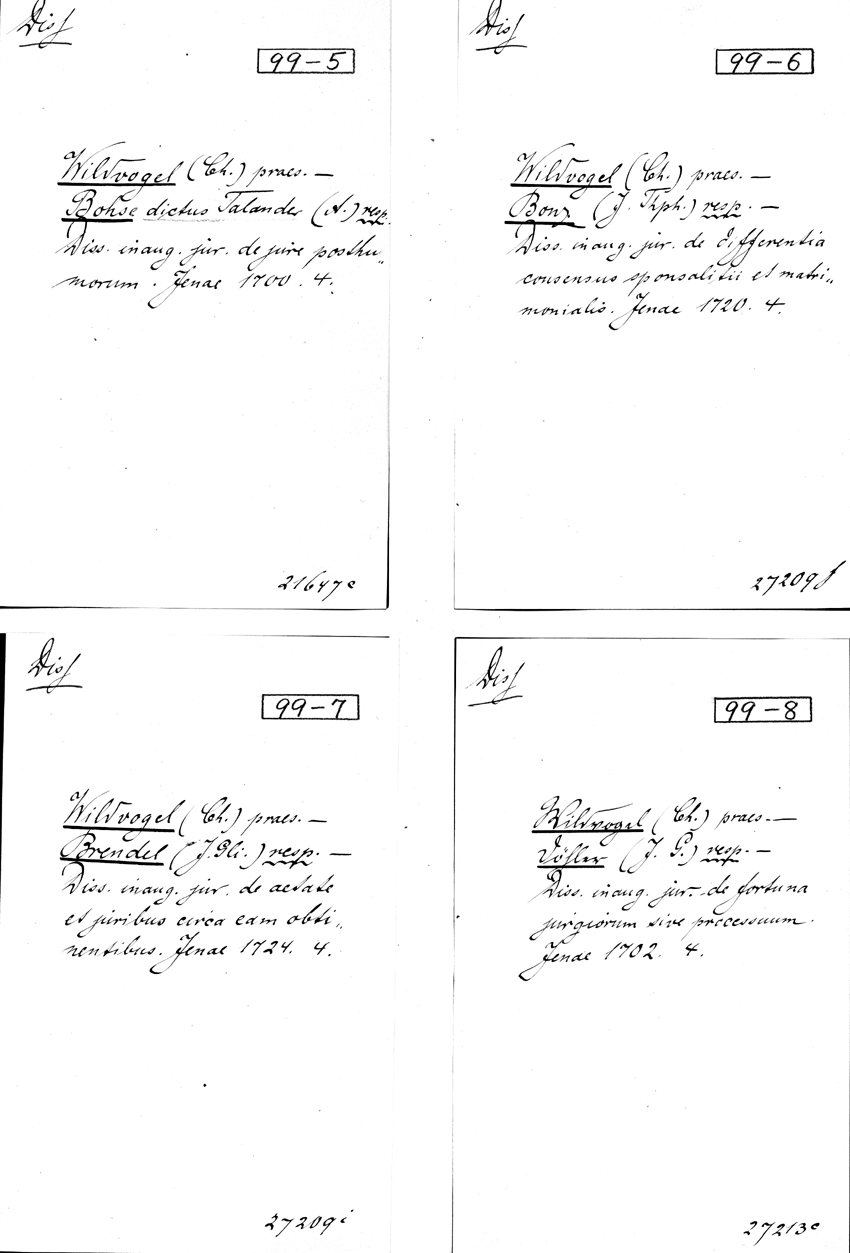 Diss
99-5
Wildvogel (Ch.) praes. —
Bohse dictus Talander (A.) resp.
Diss. inaug. jur. de jure posthu„
morum. Jenae 1700. 4.
21647c
Diss
99-6
Wildvogel (Ch.) praes. —
Bonz (J. Thph.) resp. —
Diss. inaug. jur. de differentia
consensus sponsalitii et matri„
monialis. Jenae 1720. 4.
27209f
Diss
99-7
Wildvogel (Ch.) praes. —
Brendel (J. Gli.) resp. —
Diss. inaug. jur. de aetate
et juribus circa eam obti„
nentibus. Jenae 1724. 4.
27209i
Diss
99-8
Wildvogel (Ch.) praes. —
(J. G.) resp. —
Diss. inaug. jur. de fortuna
jurgiorum sive processuum.
Jenae 1702. 4.
27213c